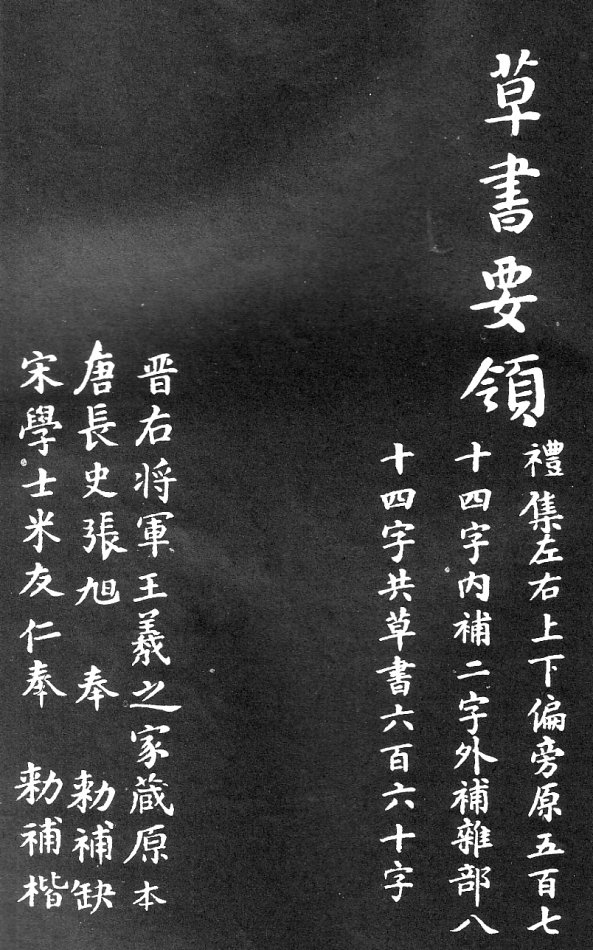 草書要領
禮集左右上下偏旁原五百七
十四字內補二字外補雜部八
十四字共草書六百六十字
晋右将軍王羲之家蔵原本
唐長史張旭奉勅補缺
宋學士米友仁奉勅補楷